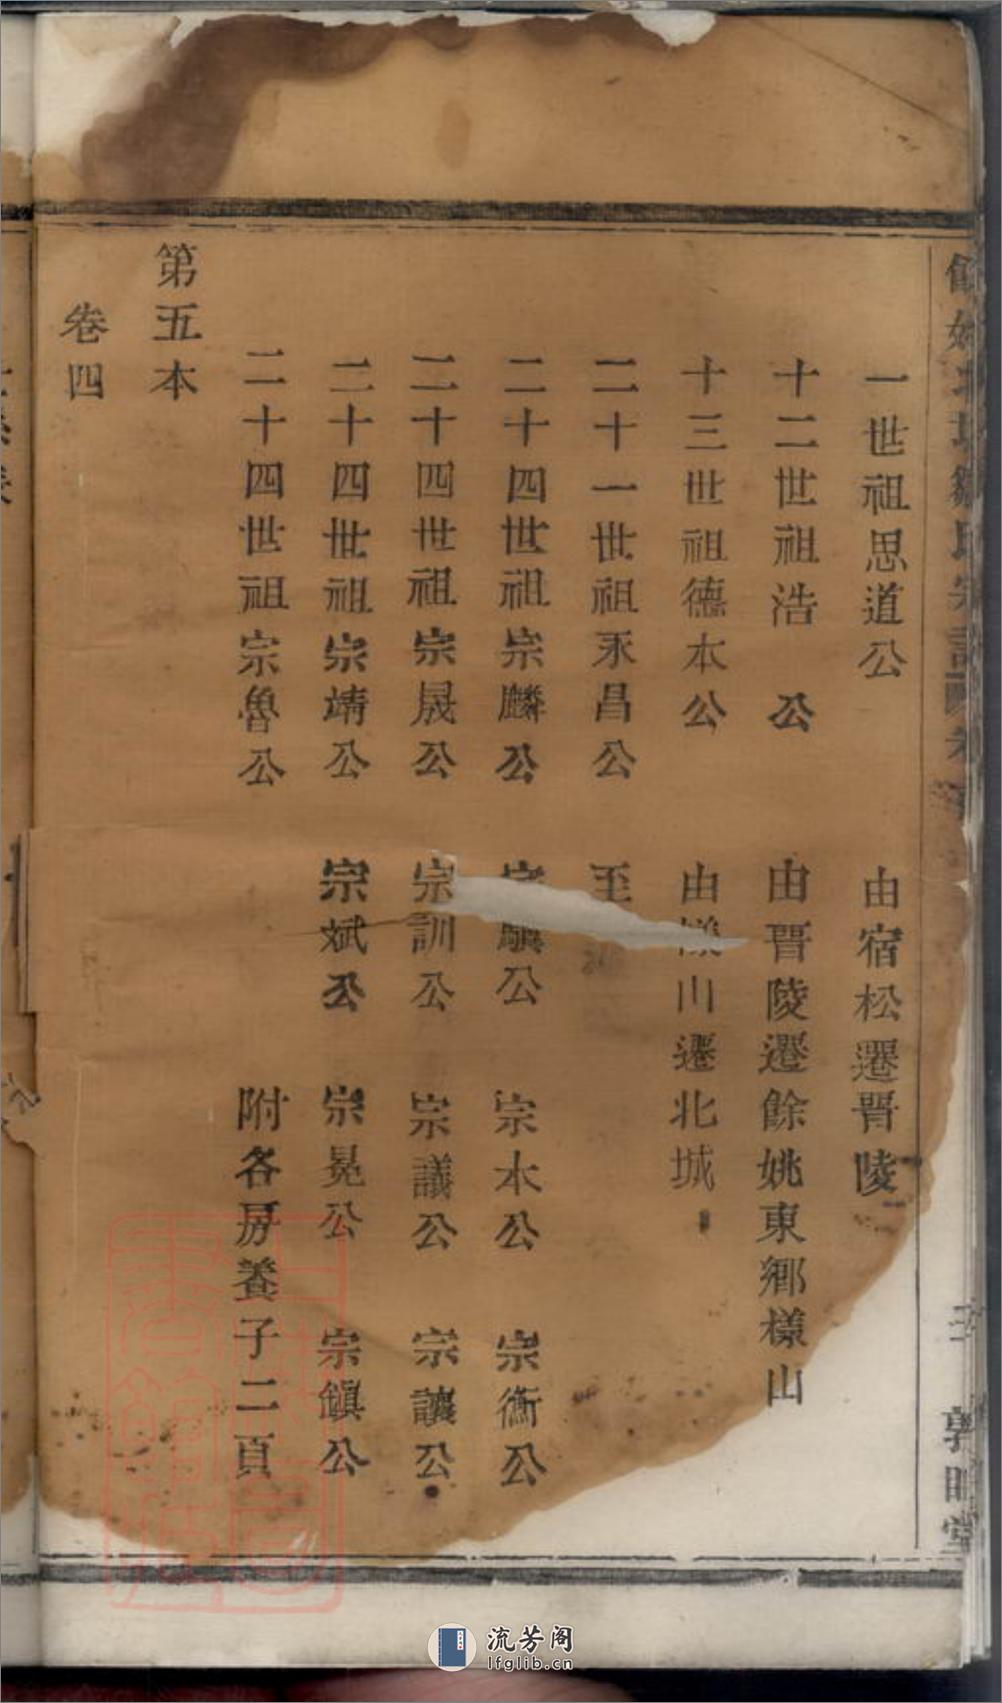 一世祖思道公 由宿松遷晋陵
十二世祖浩 公 由晋陵遷餘姚東鄉樣山
十三世祖德本公 由樣山遷北城
二十一世祖永昌公 至
二十四世祖宗麟公 公 宗木公 宗衡公
二十四世祖宗晟公 宗訓公 宗議公 宗讓公
二十四世祖宗靖公 宗斌公 宗晃公 宗鎮公
二十四世祖宗魯公 附各房養子二頁
第五本
卷四
流芳阁
lfglib.cn